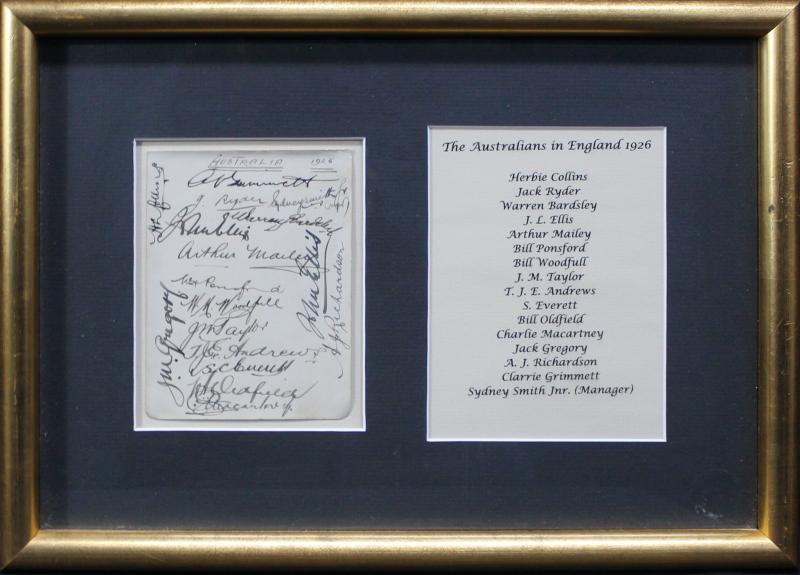 AUSTRALIA 1926
J. Ryder
Arthur Mailey
W. M. Woodfull
J M Taylor
T. J. E. Andrews
S. C. Everett
W A Oldfield
C G Macartney
J. M. Gregory
John Ellis
A J Richardson
The Australians in England 1926
Herbie Collins
Jack Ryder
Warren Bardsley
J. L. Ellis
Arthur Mailey
Bill Ponsford
Bill Woodfull
J. M. Taylor
T. J. E. Andrews
S. Everett
Bill Oldfield
Charlie Macartney
Jack Gregory
A. J. Richardson
Clarrie Grimmett
Sydney Smith Jnr. (Manager)